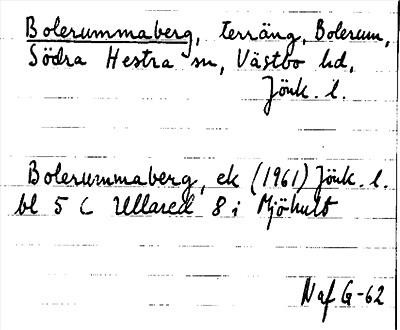 Bolerummaberg, terräng, Bolerum,
Södra Hestra sn, Västbo hd,
Jönk. l.
Bolerummaberg, ek (1961) Jönk. l.
bl 5 C Ullared 8 i Mjöhult
Naf G-62